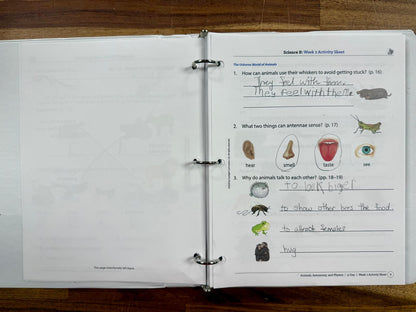 Science B: Week 2 Activity Sheet
The Usborne World of Animals
1. How can animals use their whiskers to avoid getting stuck? (p. 16)
They feel with them.
They feel with the
2. What two things can antennae sense? (p. 17)
hear
smell
taste
see
3. Why do animals talk to each other? (pp. 18–19)
to show other bees the food.
to attrack females
hug
This page intentionally left blank.
Animals, Astronomy, and Physics | 4-Day | Week 2 Activity Sheet